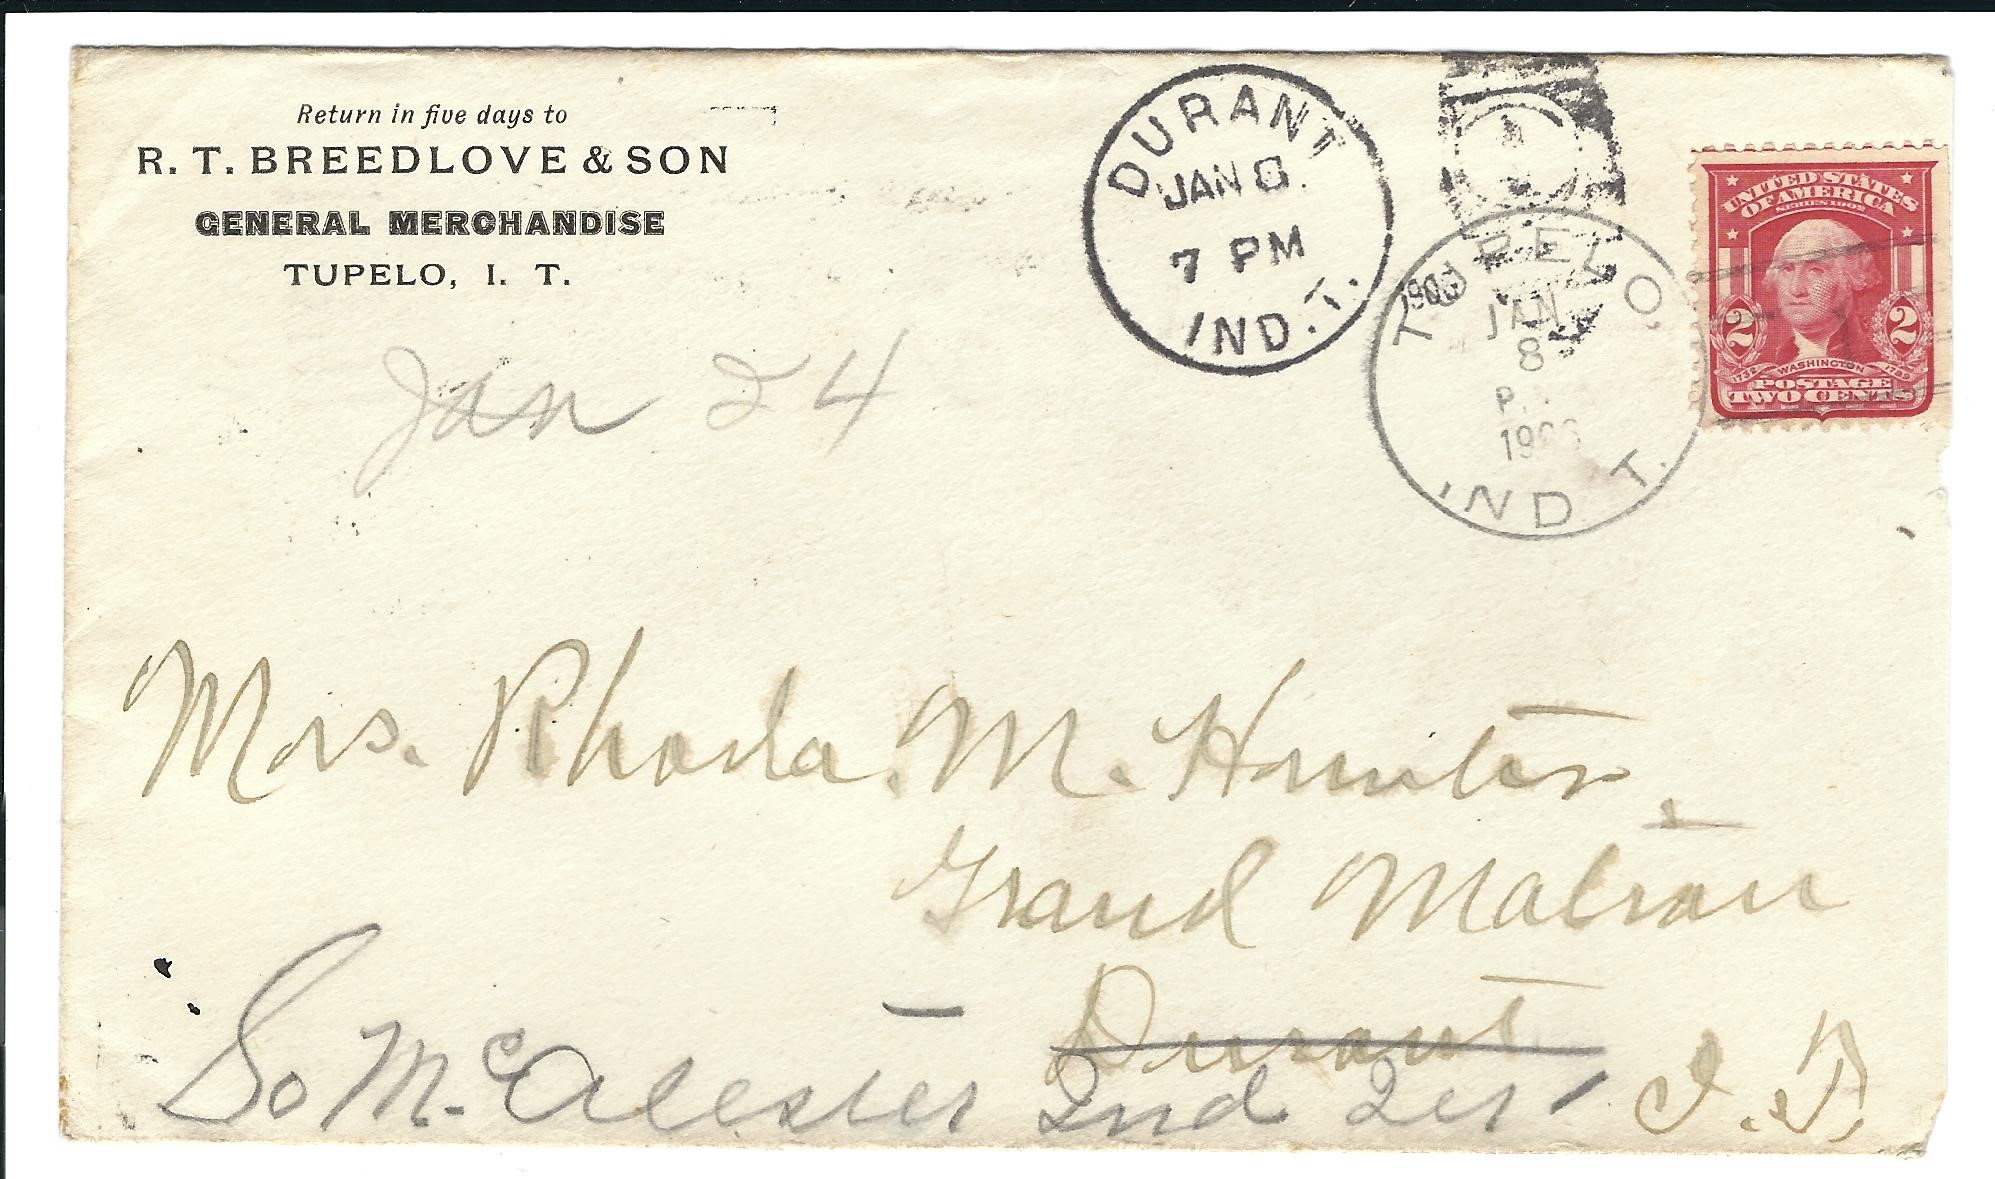 Return in five days to
R. T. BREEDLOVE & SON
GENERAL MERCHANDISE
TUPELO, I. T.
DURANT
JAN
7 PM
IND. T.
TUPELO,
JAN
8
P.
IND. T.
UNITED STATES
OF AMERICA
SERIES 1902
2 2
1732 WASHINGTON 1799
POSTAGE
TWO CENTS
Jan 24
Mrs. Rhoda. M. Hunter.
Grand Matron
Durant
So McAlester Ind Ter I. T.